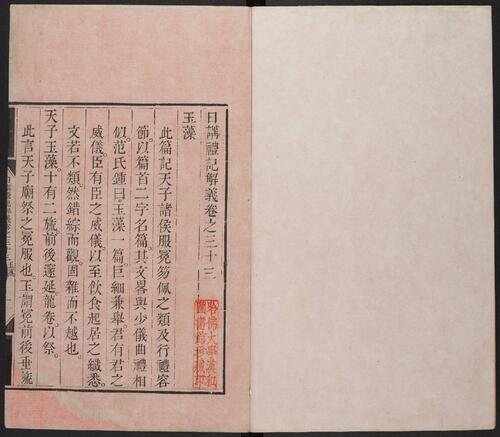 日講禮記解義卷之三十三
玉藻
此篇記天子諸侯服冕笏佩之類及行禮容
節。以篇首二字名篇。其文畧與少儀曲禮相
似。范氏鍾曰。玉藻一篇。巨細兼舉。君有君之
威儀。臣有臣之威儀。以至飲食起居之纖悉。
文若不類。然錯綜而觀。固雜而不越也。
天子玉藻。十有二旒。前後邃延。龍卷以祭。
此言天子廟祭之冕服也。玉謂冕前後垂旒
哈佛大學漢和
圖書館珍藏印